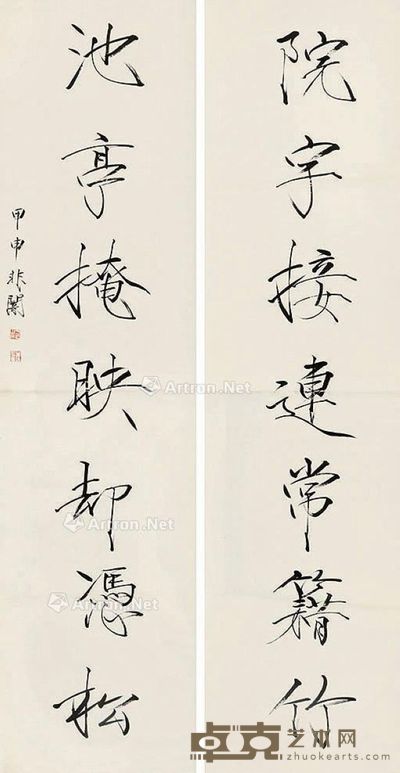 院宇接連常籍竹
池亭掩映却憑松
甲申非闇
Artron.Net
Artron.Net
Artron.Net
卓克艺术网
www.zhuokearts.com